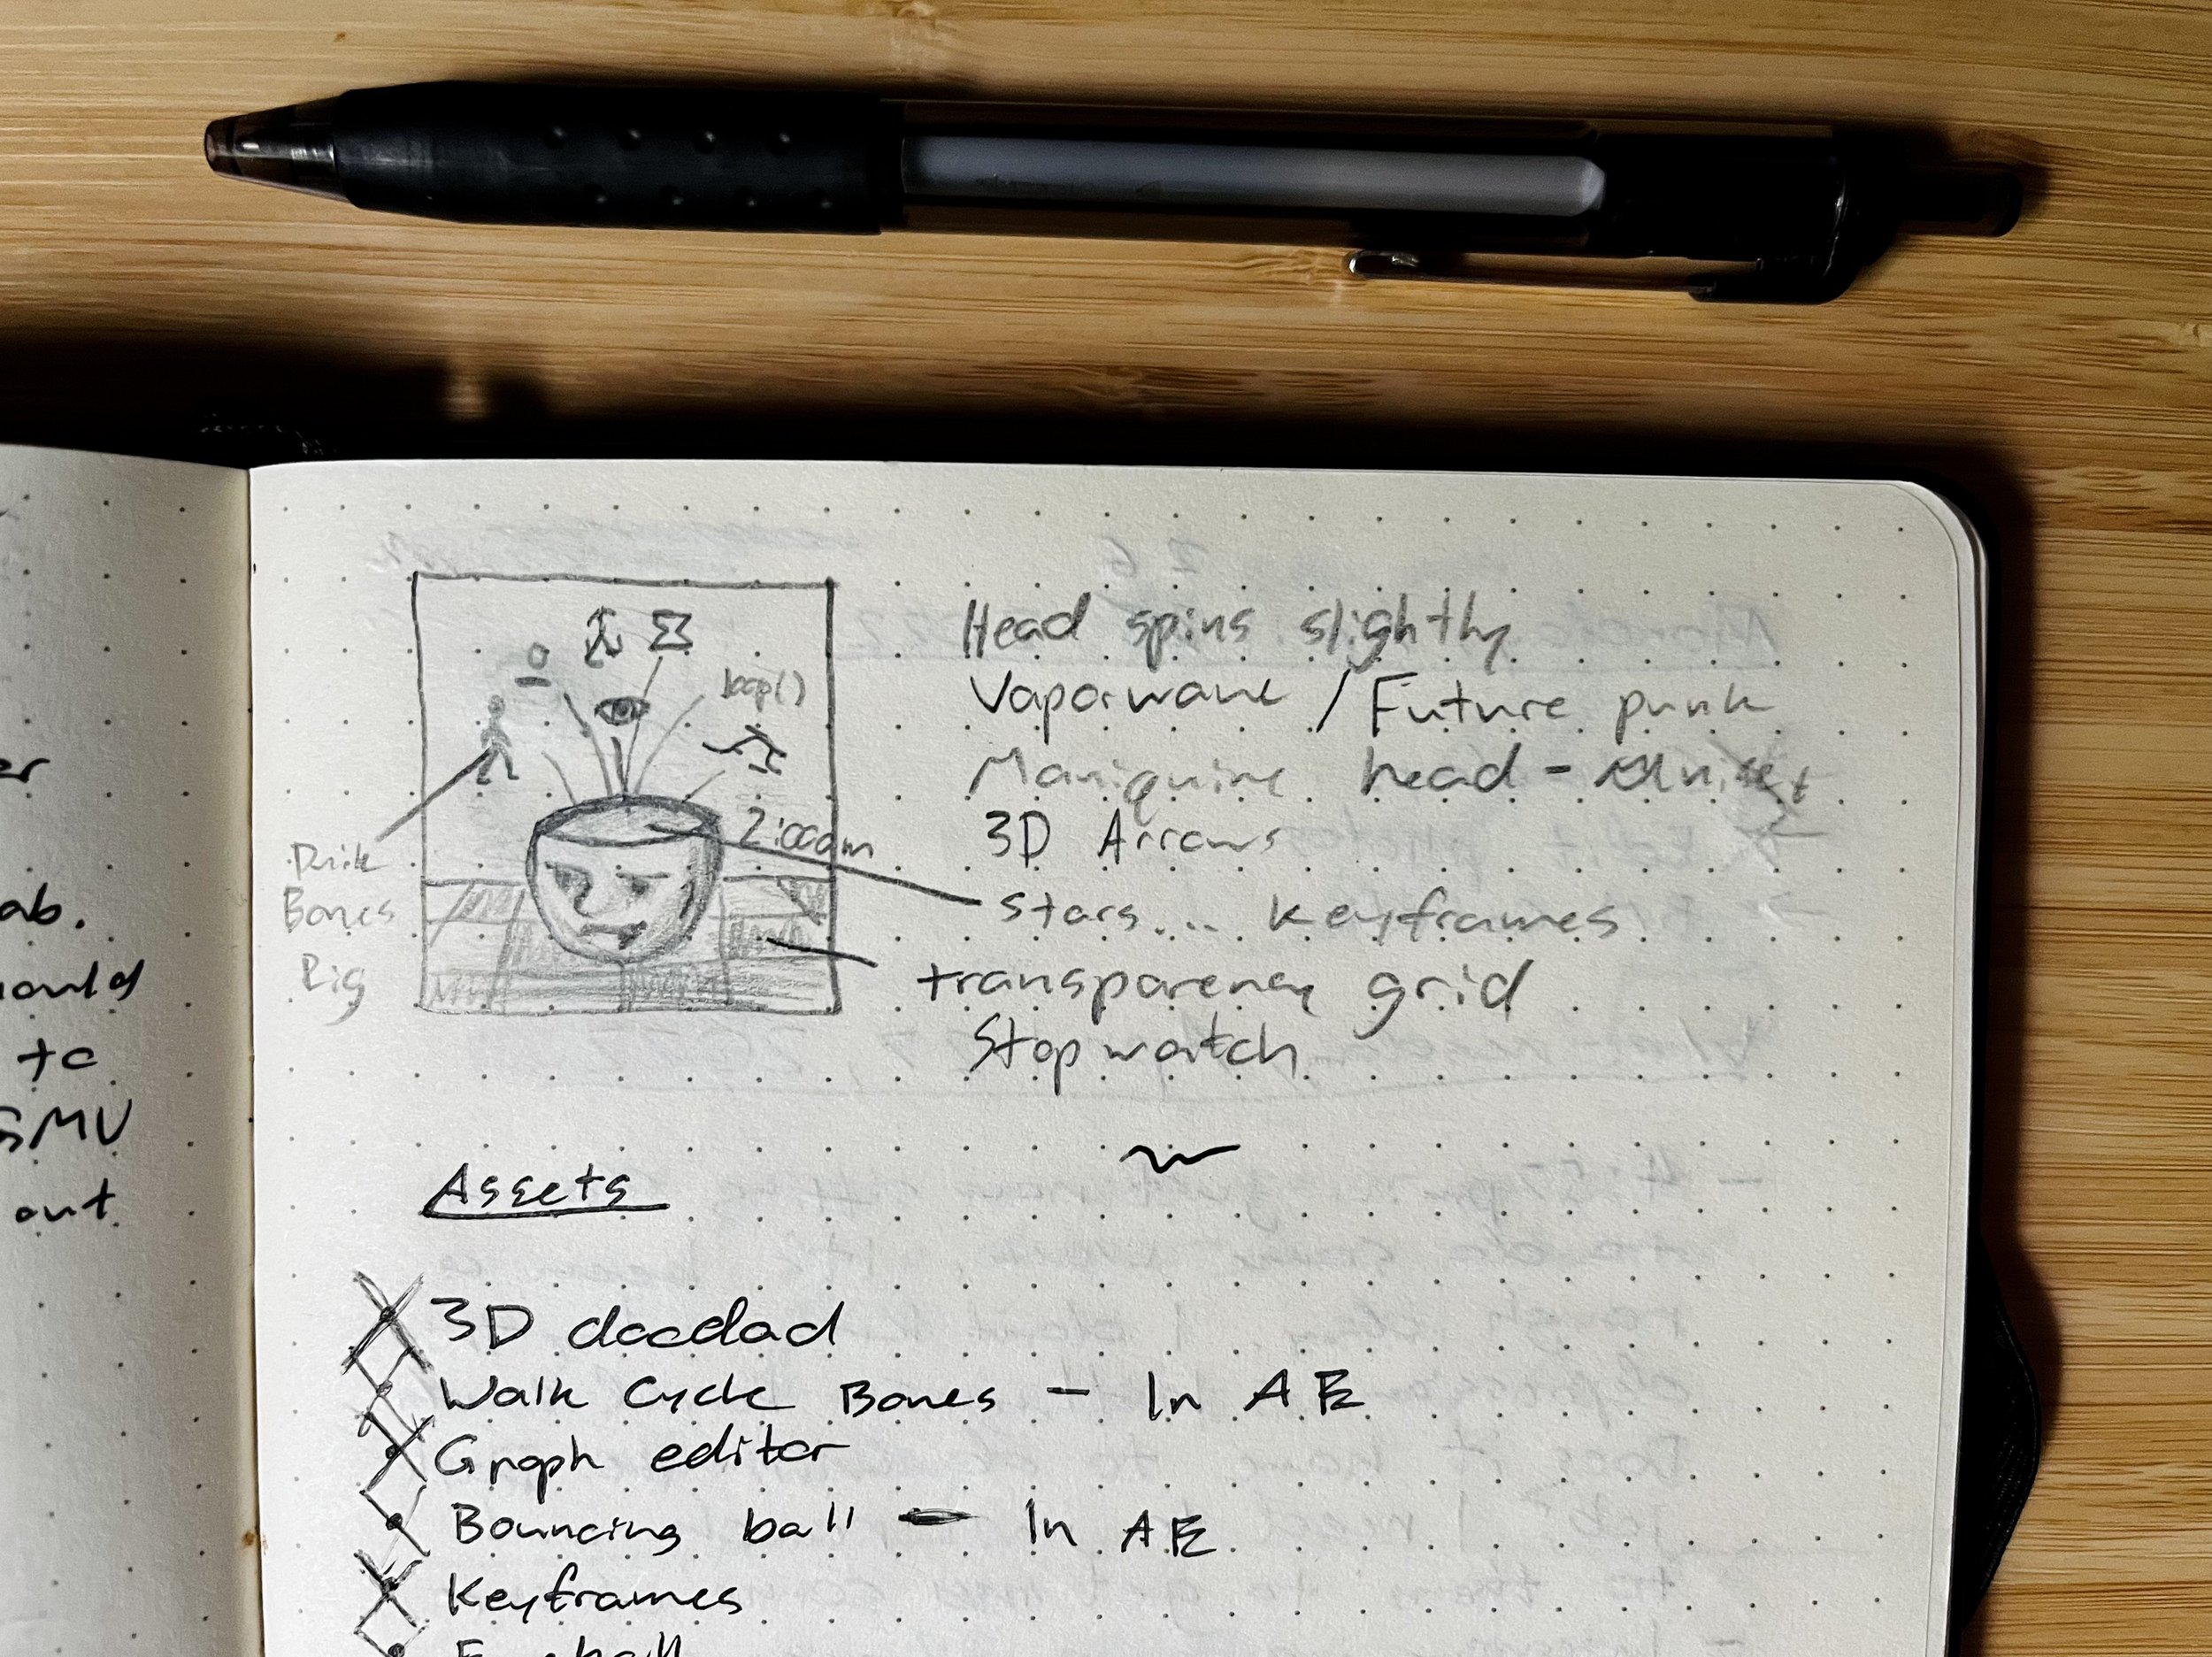 er
ab.
to
GMV
out
loop()
2:00am
Duik
Bones
Rig
Head spins slightly
Vaporwave / Future punk
Maniquine head -
3D Arrows
Stars... Keyframes
transparency grid
Stopwatch
Assets
3D doodad
Walk Cycle Bones - In AE
Graph editor
Bouncing ball - In AE
Keyframes
Eyeball